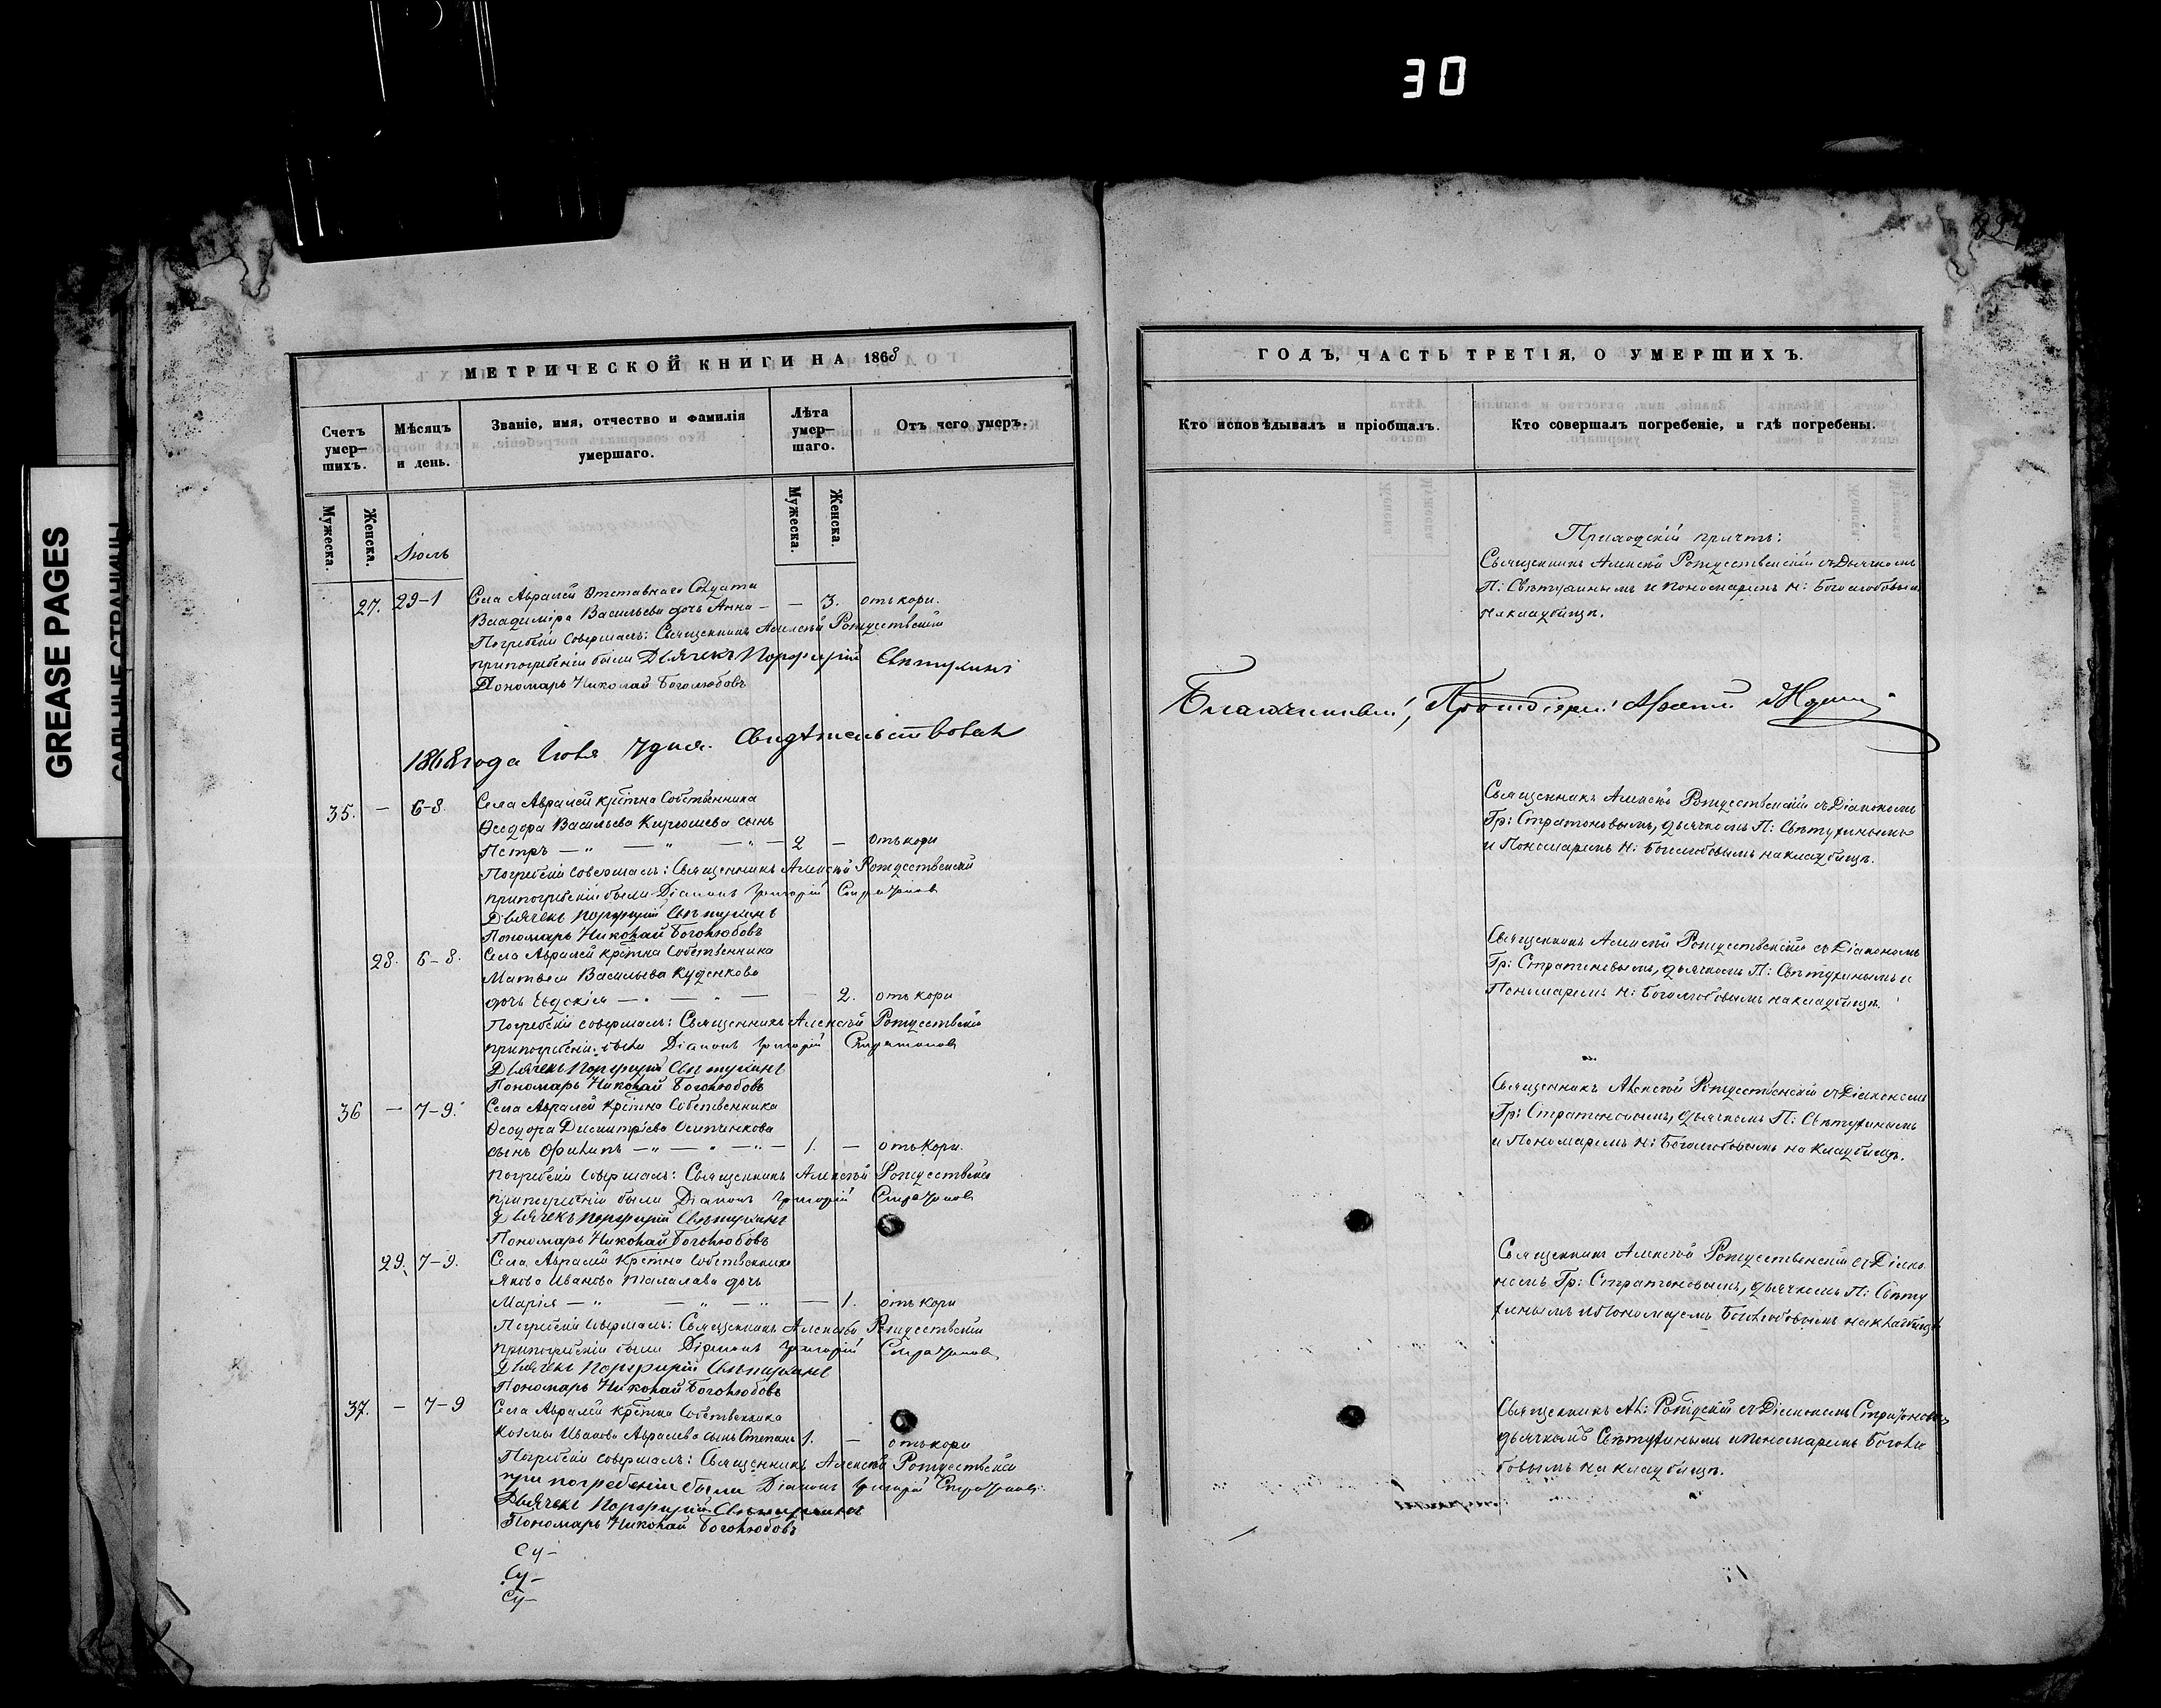 30
GREASE PAGES
САЛЬНЫЕ СТРАНИЦЫ
МЕТРИЧЕСКОЙ КНИГИ НА 1868
Счетъ умер-
шихъ.
Мѣсяцъ
и день.
Званіе, имя, отчество и фамилія
умершаго.
Лѣта
умер-
шаго.
Отъ чего умеръ.
Мужеска.
Женска.
Мужеска.
Женска.
Іюль
27. 29-1 Села Авралей Отставнаго Солдата
Владиміра Васильева дочь Анна — — 3. отъ кори.
Погребеніе совершалъ: Священникъ Алексѣй Рождественскій
при погребеніи были Дьячекъ Порфирій Свѣтухинъ
Пономарь Николай Боголюбовъ
1868 года Іюля 7 дня. Свидѣтельствовалъ
35. — 6-8. Села Авралей крестна Собственника
Ѳеодора Васильева Кирюшева сынъ
Петръ — „ — „ — „ — 2 — отъ кори
Погребеніе совершалъ: Священникъ Алексѣй Рождественскій
при погребеніи были Діаконъ Григорій Стратоновъ
Дьячекъ Порфирій Свѣтухинъ
Пономарь Николай Боголюбовъ
28. 6-8. Села Авралей крестна Собственника
Матвея Васильева Куденкова
дочь Евдокія — „ — „ — — 2. отъ кори
Погребеніе совершалъ: Священникъ Алексѣй Рождественскій
при погребеніи были Діаконъ Григорій Стратоновъ
Дьячекъ Порфирій Свѣтухинъ
Пономарь Николай Боголюбовъ
36 — 7-9. Села Авралей крестна Собственника
Ѳеодора Димитріева
сынъ Филипъ — „ — „ — „ — 1. — отъ кори.
Погребеніе совершалъ: Священникъ Алексѣй Рождественскій
при погребеніи были Діаконъ Григорій Стратоновъ
Дьячекъ Порфирій Свѣтухинъ
Пономарь Николай Боголюбовъ
29. 7-9. Села Авралей крестна Собственника
Якова Иванова Талалава дочь
Марія — „ — „ — „ — 1. отъ кори
Погребеніе совершалъ: Священникъ Алексѣй Рождественскій
при погребеніи были Діаконъ Григорій Стратоновъ
Дьячекъ Порфирій Свѣтухинъ
Пономарь Николай Боголюбовъ
37. — 7-9 Села Авралей крестна Собственника
Козмы Иванова Авралева сынъ Степанъ 1. — отъ кори
Погребеніе совершалъ: Священникъ Алексѣй Рождественскій
при погребеніи были Діаконъ Григорій Стратоновъ
Дьячекъ Порфирій Свѣтухинъ
Пономарь Николай Боголюбовъ
Су-
Су-
Су-
ГОДЪ, ЧАСТЬ ТРЕТІЯ, О УМЕРШИХЪ.
Кто исповѣдывалъ и пріобщалъ.
Кто совершалъ погребеніе, и гдѣ погребены.
Приходскій причтъ:
Священникъ Алексѣй Рождественскій съ Дьячкомъ
П: Свѣтухинымъ и пономаремъ Н: Боголюбовымъ
на кладбищѣ.
Благочинный, Протоіерей
Священникъ Алексѣй Рождественскій съ Діакономъ
Гр: Стратоновымъ, дьячкомъ П: Свѣтухинымъ
и Пономаремъ Н: Боголюбовымъ на кладбищѣ.
Священникъ Алексѣй Рождественскій съ Діакономъ
Гр: Стратоновымъ, дьячкомъ П: Свѣтухинымъ и
Пономаремъ Н: Боголюбовымъ на кладбищѣ.
Священникъ Алексѣй Рождественскій съ Діакономъ
Гр: Стратоновымъ, дьячкомъ П: Свѣтухинымъ
и Пономаремъ Н: Боголюбовымъ на кладбищѣ.
Священникъ Алексѣй Рождественскій съ Діако-
номъ Гр: Стратоновымъ, дьячкомъ П: Свѣту
хинымъ и Пономаремъ Боголюбовымъ на кладбищѣ
Священникъ Ал: Рождскій съ Діакономъ Стратоновымъ
дьячкомъ Свѣтухинымъ и Пономаремъ Боголю
бовымъ на кладбищѣ.